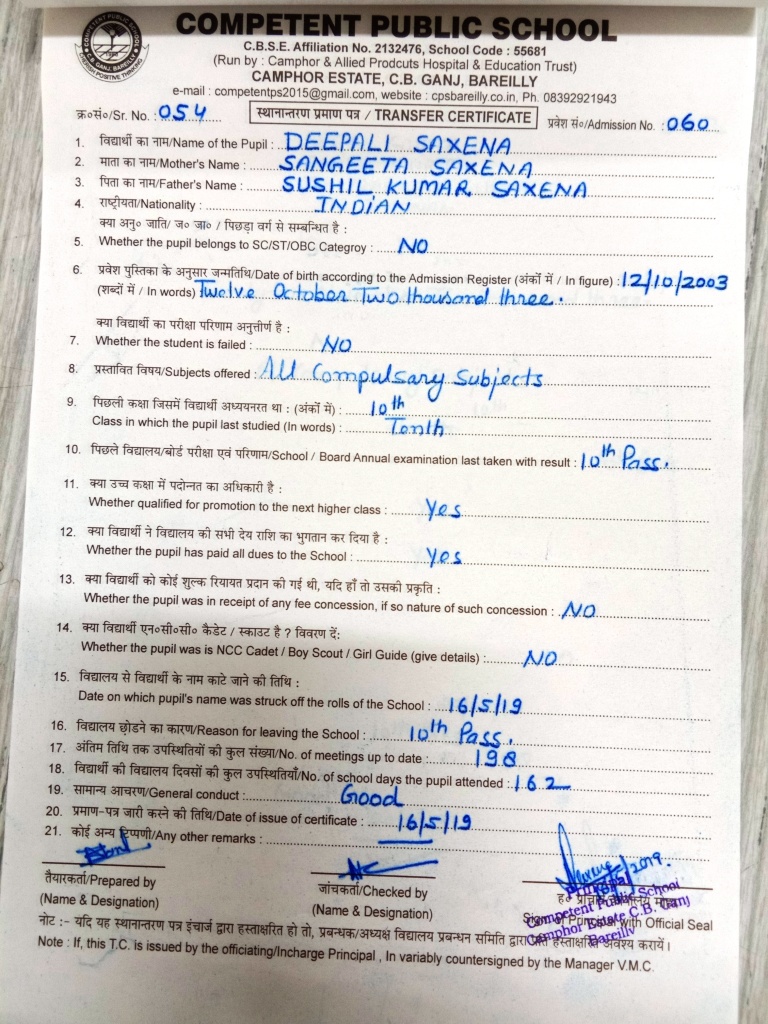 COMPETENT PUBLIC SCHOOL
C.B.S.E. Affiliation No. 2132476, School Code : 55681
(Run by : Camphor & Allied Prodcuts Hospital & Education Trust)
CAMPHOR ESTATE, C.B. GANJ, BAREILLY
e-mail : competentps2015@gmail.com, website : cpsbareilly.co.in, Ph. 08392921943
क्र०सं०/Sr. No. : 054 स्थानान्तरण प्रमाण पत्र / TRANSFER CERTIFICATE प्रवेश सं०/Admission No. : 060
1. विद्यार्थी का नाम/Name of the Pupil : DEEPALI SAXENA
2. माता का नाम/Mother's Name : SANGEETA SAXENA
3. पिता का नाम/Father's Name : SUSHIL KUMAR SAXENA
4. राष्ट्रीयता/Nationality : INDIAN
क्या अनु० जाति/ ज० जा० / पिछड़ा वर्ग से सम्बन्धित है :
5. Whether the pupil belongs to SC/ST/OBC Categroy : NO
6. प्रवेश पुस्तिका के अनुसार जन्मतिथि/Date of birth according to the Admission Register (अंकों में / In figure) : 12/10/2003
(शब्दों में / In words) Twelve October Two thousand three.
क्या विद्यार्थी का परीक्षा परिणाम अनुत्तीर्ण है :
7. Whether the student is failed : NO
8. प्रस्तावित विषय/Subjects offered : All Compulsary Subjects
9. पिछली कक्षा जिसमें विद्यार्थी अध्ययनरत था : (अंकों में) : 10th
Class in which the pupil last studied (In words) : Tenth
10. पिछले विद्यालय/बोर्ड परीक्षा एवं परिणाम/School / Board Annual examination last taken with result : 10th Pass.
11. क्या उच्च कक्षा में पदोन्नत का अधिकारी है :
Whether qualified for promotion to the next higher class : Yes
12. क्या विद्यार्थी ने विद्यालय की सभी देय राशि का भुगतान कर दिया है :
Whether the pupil has paid all dues to the School : Yes
13. क्या विद्यार्थी को कोई शुल्क रियायत प्रदान की गई थी, यदि हाँ तो उसकी प्रकृति :
Whether the pupil was in receipt of any fee concession, if so nature of such concession : NO
14. क्या विद्यार्थी एन०सी०सी० कैडेट / स्काउट है ? विवरण दें:
Whether the pupil was is NCC Cadet / Boy Scout / Girl Guide (give details) : NO
15. विद्यालय से विद्यार्थी के नाम काटे जाने की तिथि :
Date on which pupil's name was struck off the rolls of the School : 16/5/19
16. विद्यालय छोडने का कारण/Reason for leaving the School : 10th Pass.
17. अंतिम तिथि तक उपस्थितियों की कुल संख्या/No. of meetings up to date : 198
18. विद्यार्थी की विद्यालय दिवसों की कुल उपस्थितियाँ/No. of school days the pupil attended : 162
19. सामान्य आचरण/General conduct : Good
20. प्रमाण-पत्र जारी करने की तिथि/Date of issue of certificate : 16/5/19
21. कोई अन्य टिप्पणी/Any other remarks :
तैयारकर्ता/Prepared by
(Name & Designation)
जांचकर्ता/Checked by
(Name & Designation)
Principal
Competent Public School
Camphor Estate C.B. Ganj
Bareilly
with Official Seal
नोट :- यदि यह स्थानान्तरण पत्र इंचार्ज द्वारा हस्ताक्षरित हो तो, प्रबन्धक/अध्यक्ष विद्यालय प्रबन्धन समिति द्वारा हस्ताक्षरित अवश्य करायें।
Note : If, this T.C. is issued by the officiating/Incharge Principal , In variably countersigned by the Manager V.M.C.